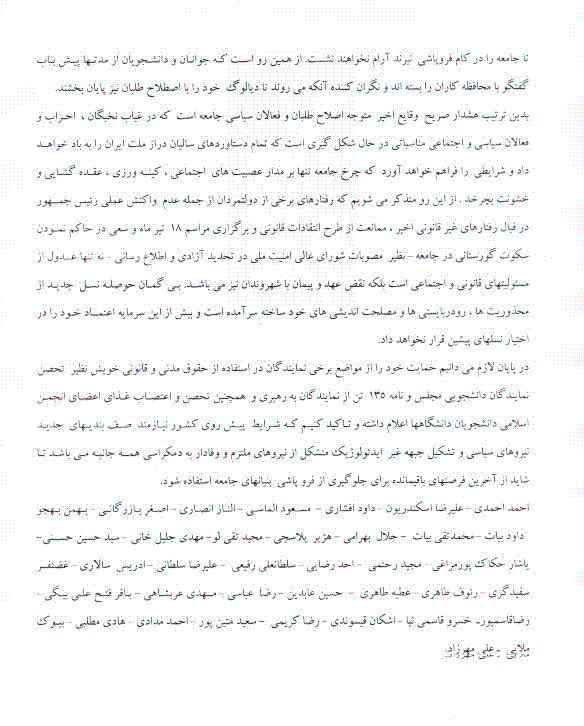 تا جامعه را در کام فروپاشی نبرند آرام نخواهند نشست. از همین رو است که جوانان و دانشجویان از مدتها پیش باب
گفتگو با محافظه کاران را بسته اند و نگران کننده آنکه می روند تا دیالوگ خود را با اصطلاح طلبان نیز پایان بخشند.
بدین ترتیب هشدار صریح وقایع اخیر متوجه اصلاح طلبان و فعالان سیاسی جامعه است که در غیاب نخبگان ، احزاب و
فعالان سیاسی و اجتماعی مناسباتی در حال شکل گیری است که تمام دستاوردهای سالیان دراز ملت ایران را به باد خواهد
داد و شرایطی را فراهم خواهد آورد که چرخ جامعه تنها بر مدار عصبیت های اجتماعی ، کینه ورزی ، عقده گشایی و
خشونت بچرخد . از این رو متذکر می شویم که رفتارهای برخی از دولتمردان از جمله عدم واکنش عملی رئیس جمهور
در قبال رفتارهای غیر قانونی اخیر ، ممانعت از طرح انتقادات قانونی و برگزاری مراسم ۱۸ تیر ماه و سعی در حاکم نمودن
سکوت گورستانی در جامعه – نظیر مصوبات شورای عالی امنیت ملی در تحدید آزادی و اطلاع رسانی - نه تنها عدول از
مسئولیتهای قانونی و اجتماعی است بلکه نقض عهد و پیمان با شهروندان نیز می باشد. بی گمان حوصله نسل جدید از
محذوریت ها ، رودربایستی ها و مصلحت اندیشی های خود ساخته سرآمده است و بیش از این سرمایه اعتماد خود را در
اختیار نسلهای پیشین قرار نخواهد داد.
در پایان لازم می دانیم حمایت خود را از مواضع برخی نمایندگان در استفاده از حقوق مدنی و قانونی خویش نظیر تحصن
نمایندگان دانشجویی مجلس و نامه ۱۳۵ تن از نمایندگان به رهبری و همچنین تحصن و اعتصاب غذای اعضای انجمن
اسلامی دانشجویان دانشگاهها اعلام داشته و تاکید کنیم که شرایط پیش روی کشور نیازمند صف بندیهای جدید
نیروهای سیاسی و تشکیل جبهه غیر ایدئولوژیک متشکل از نیروهای ملتزم و وفادار به دمکراسی همه جانبه می باشد تا
شاید از آخرین فرصتهای باقیمانده برای جلوگیری از فرو پاشی بنیانهای جامعه استفاده شود.
احمد احمدی – علیرضا اسکندریون - داود افشاری – مسعود الماسی – الناز انصاری – اصغر بازرگانی – بهمن بهجو
داود بیات – محمدتقی بیات – جلال بهرامی – هژیر پلاسچی – مجید تقی لو – مهدی جلیل خانی – سید حسین حسنی–
یاشار حکاک پورمراغی – مجید رحتمی – احد رضایی – سلطانعلی رفیعی – علیرضا سلطانی – ادریس سالاری – غضنفر
سفیدگری – رئوف طاهری – عطیه طاهری – حسین عابدین – رضا عباسی – مهدی عربشاهی – باقر فتح علی بیگی –
رضاقاسمپور– خسرو قاسمی نیا – اشکان قیسوندی – رضا کریمی – سعید متین پور – احمد مدادی – هادی مطلبی – بیوک
ملایی – علی مهرزاد.